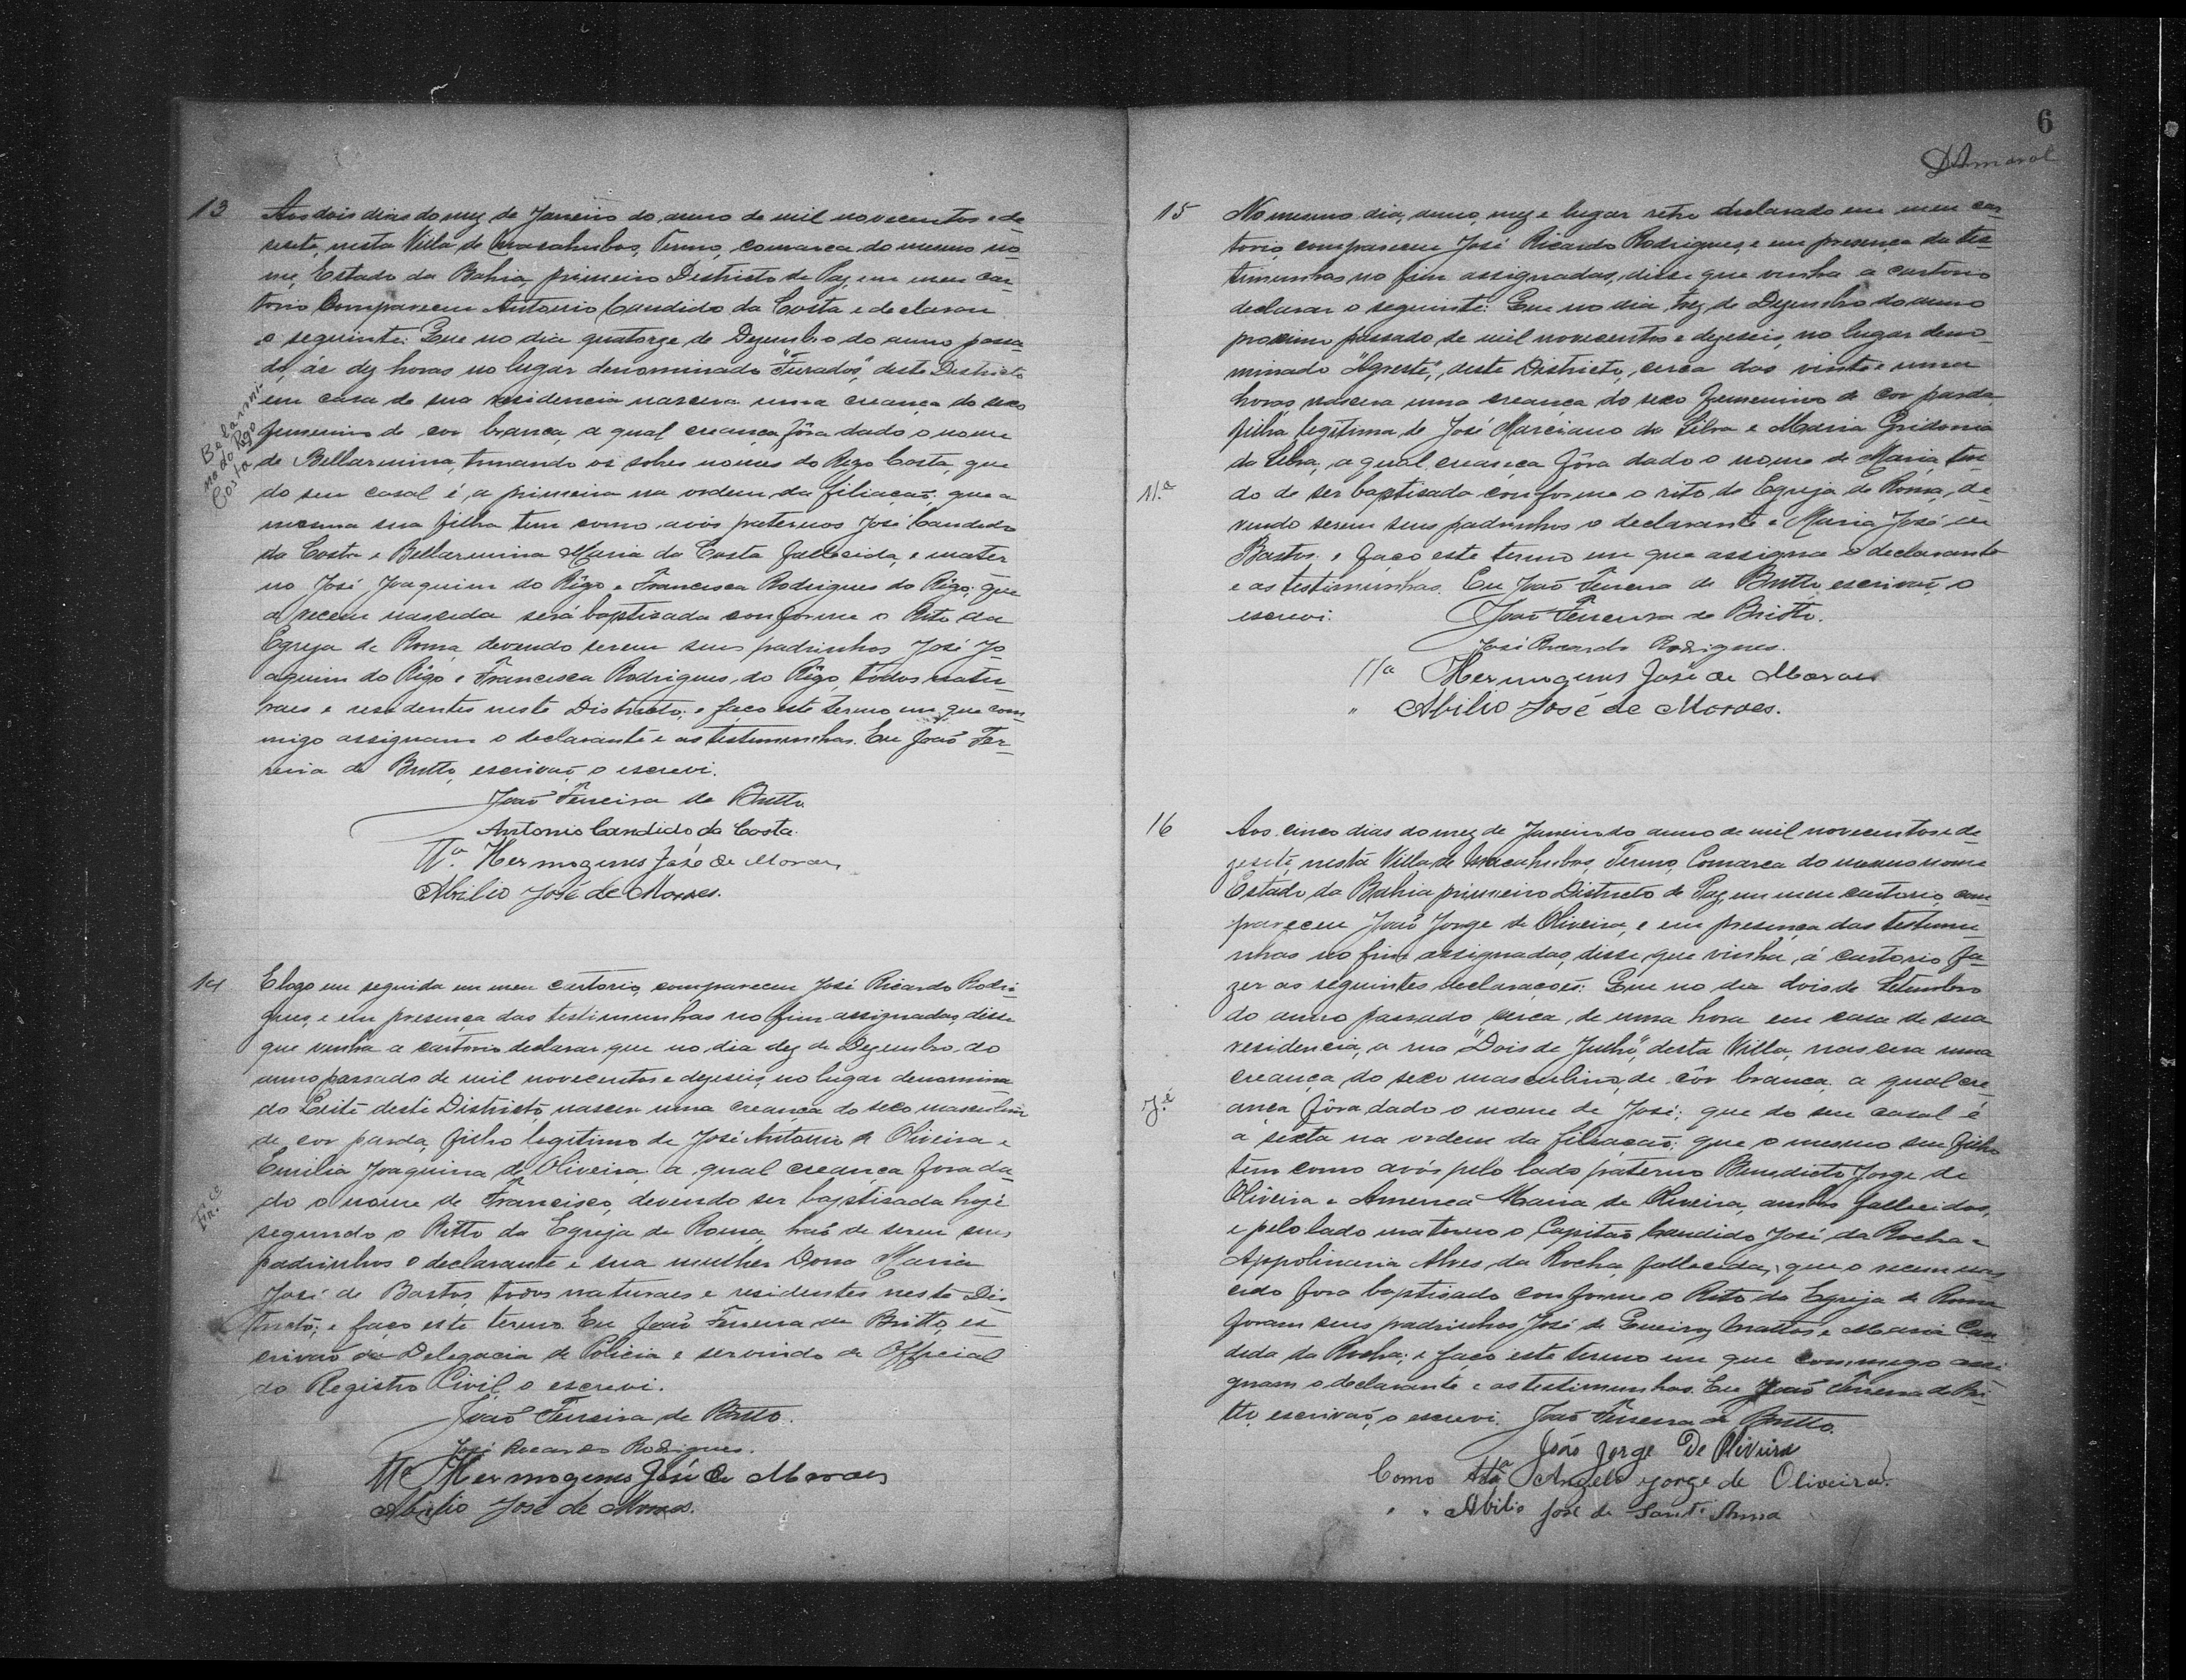 13
Aos dois dias do mez de Janeiro do anno de mil novecentos e de
sesete, nesta Villa de Macahubas, Termo, comarca do mesmo no
me, Estado da Bahia, primeiro Districto de Paz, em meu car
torio compareceu Antonio Candido da Costa e declarou
o seguinte: Que no dia quatorze de Dezembro do anno passa
do, ás dez horas no lugar denominado "Furados", deste Districto
em casa de sua residencia nascera uma creança do sexo
femenino de cor branca, a qual creança fôra dado o nome
de Bellarmina, tomando os sobre nomes do Rego Costa, que
do seu casal é a primeira na ordem da filiação; que a
mesma sua filha tem como avós paternos José Candido
da Costa e Bellarmina Maria da Costa fallecida, e mater
no José Joaquim do Rêgo e Francisca Rodrigues do Rêgo; que
a recem nascida será baptisada conforme o Rito da
Egreja de Roma, devendo serem seus padrinhos José Jo
aquim do Rêgo e Francisca Rodrigues do Rêgo, todos natu
raes e residentes neste Districto; e faço este termo em que com
migo assignam o declarante e as testemunhas. Eu João Fer
reira de Britto, escrivão o escrevi.
Belarmi
na do Rego
Costa
João Ferreira de Britto
Antonio Candido da Costa
Tª. Hermogenes José de Moraes
Abilio José de Moraes.
14
E logo em seguida em meu cartorio, compareceu José Ricardo Rodri
gues, e em presença das testimunhas no fim assignadas, disse
que vinha a cartorio declarar, que no dia dez de Dezembro do
anno passado de mil novecentos e dezeseis, no lugar denomina
do deste Districto, nasceu uma creança do sexo masculino
de cor parda, filho legitimo de José Antonio de Oliveira e
Emilia Joaquina de Oliveira, a qual creança fora da
do o nome de Francisco, devendo ser baptisada hoje
segundo o Ritto da Egreja de Roma, hão de serem seus
padrinhos o declarante e sua mulher Dona Maria
José de Bastos, todos naturaes e residentes neste Dis
tricto; e faço este termo. Eu João Ferreira de Britto, es
crivão da Delegacia de Policia e servindo de Official
do Registro Civil, o escrevi.
João Ferreira de Britto.
José Ricardo Rodrigues.
Tª Hermogenes José de Moraes
Abilio José de Moraes.
6
DAmaral
15
No mesmo dia, anno, mez e lugar retro declarado em meu car
torio, compareceu José Ricardo Rodrigues, e em presença da tes
timunhas no fim assignadas, disse que vinha a cartorio
declarar o seguinte: Que no dia trez de Dezembro do anno
proximo passado, de mil novecentos e dezeseis, no lugar deno
minado "Agreste", deste Districto, cerca das vinte e uma
horas, nascera uma creança do sexo femenino de cor parda,
filha legitima de José Marciano da Silva e Maria Gridonia
da Silva, a qual creança fôra dado o nome de Maria, ten
do de ser baptisada conforme o rito da Egreja de Roma, de
vendo serem seus padrinhos o declarante e Maria José de
Bastos; e faço este termo em que assigna o declarante
e as testimunhas. Eu João Ferreira de Britto, escrivão, o
escrevi.
Mª
João Ferreira de Britto.
José Ricardo Rodrigues.
Tª Hermogenes José de Moraes
" Abilio José de Moraes.
16
Aos cinco dias do mez de Janeiro do anno de mil novecentos e de
zesete, nesta Villa de Macahubas, Termo, Comarca do mesmo nome
Estado da Bahia primeiro Districto de Paz, em meu cartorio, com
pareceu João Jorge de Oliveira, e em presença das testimu
nhas no fim assignadas, disse que vinha á cartorio fa
zer as seguintes declarações: Que no dia dois de Setembro
do anno passado cerca, de uma hora em casa de sua
residencia, a rua "Dois de Julho", desta Villa, nascera uma
creança do sexo masculino, de côr branca, a qual cre
ança fôra dado o nome de José; que do seu casal é
a sexta na ordem da filiação; que o mesmo seu filho
tem como avós pelo lado paterno Benedicto Jorge de
Oliveira e America Maria de Oliveira, ambos fallecidos,
e pelo lado materno o Capitão Candido José da Rocha e
Appolinaria Alves da Rocha, fallecida; que o recem nas
cido fora baptisado conforme o Rito da Egreja de Roma
foram seus padrinhos José de Queiroz Mattos e Maria Can
dida da Rocha; e faço este termo em que commigo assi
gnam o declarante e as testimunhas. Eu João Ferreira de Bri
tto, escrivão, o escrevi. João Ferreira de Britto.
Jé
João Jorge De Oliveira
Como Tª Angelo Jorge de Oliveira.
" " Abilio José de Sant'Anna